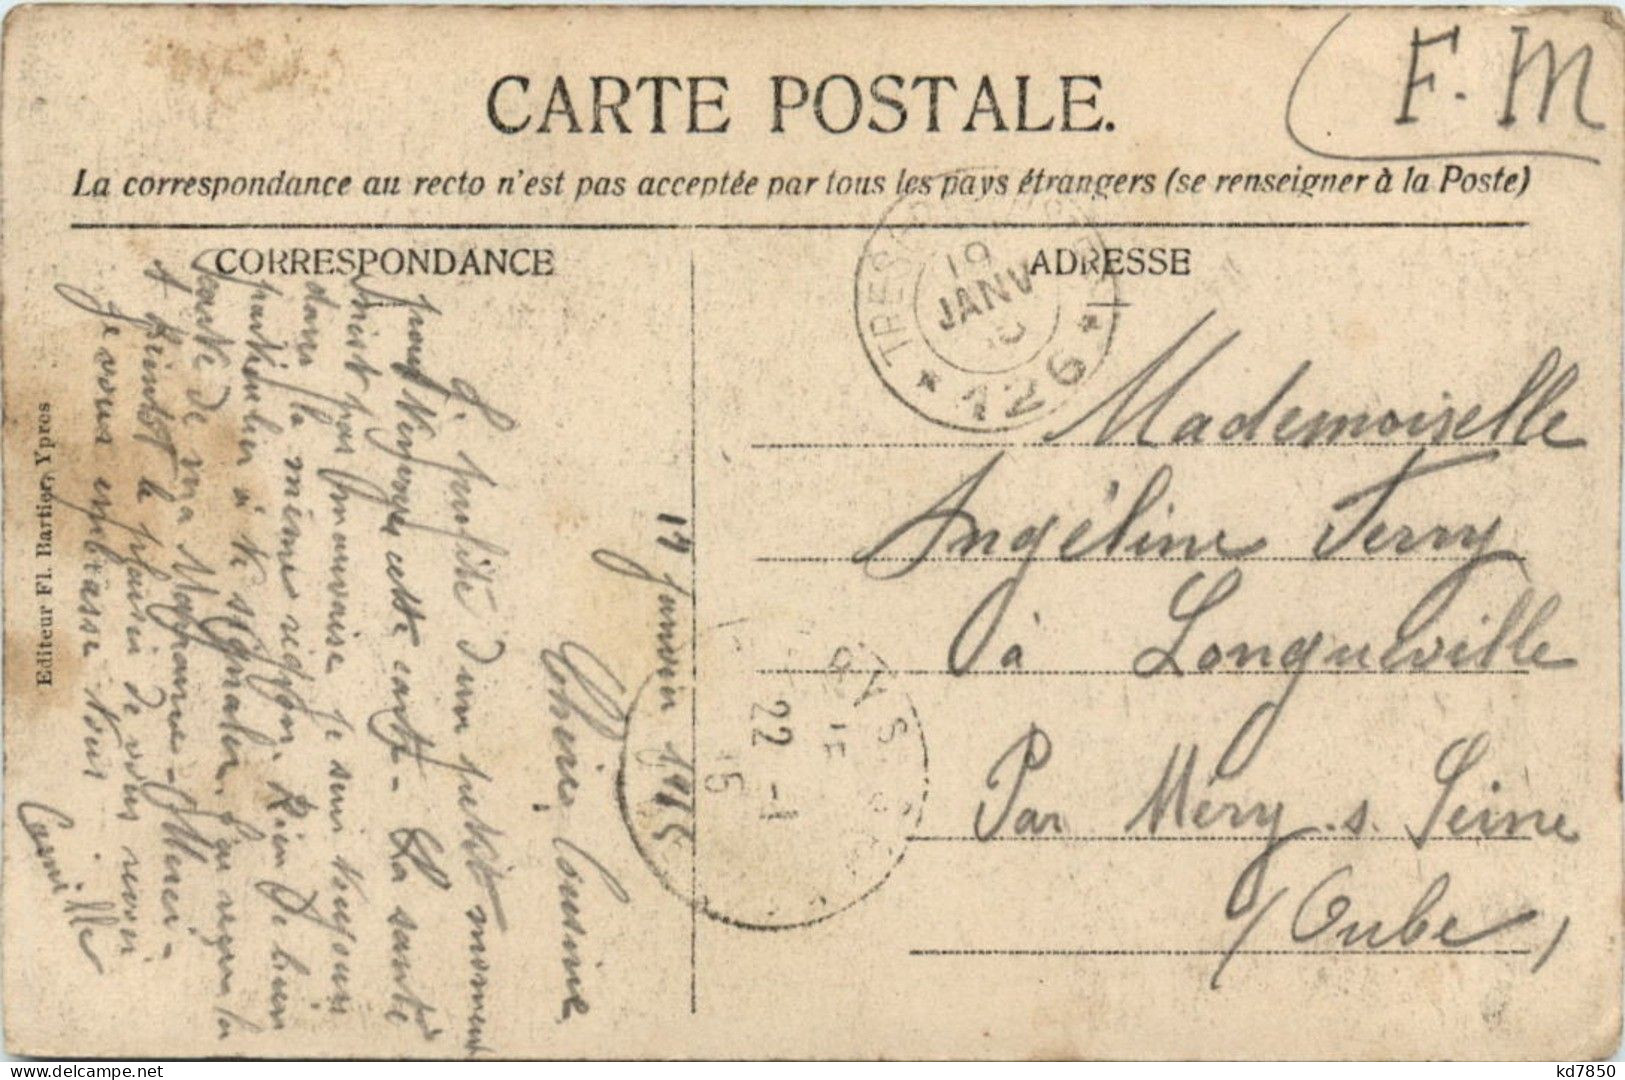 F. M
CARTE POSTALE.
La correspondance au recto n'est pas acceptée par tous les pays étrangers (se renseigner à la Poste)
CORRESPONDANCE
ADRESSE
19
JANV
15
* 126 *
17 Janvier 1915
Chère Cousine
Je profite d'un petit moment
pour t'envoyer cette carte - La santé
n'est pas mauvaise je suis toujours
dans la même région. Rien de bien
particulier à te signaler. J'ai reçu la
carte de ma Marraine - Merci -
A bientôt le plaisir de vous revoir
Je vous embrasse tous
Camille
Editeur Fl. Bartier, Ypres
22 - 1
15
Mademoiselle
Angéline Ferry
à Longueville
Par Méry s. Seine
(Aube)
kd7850